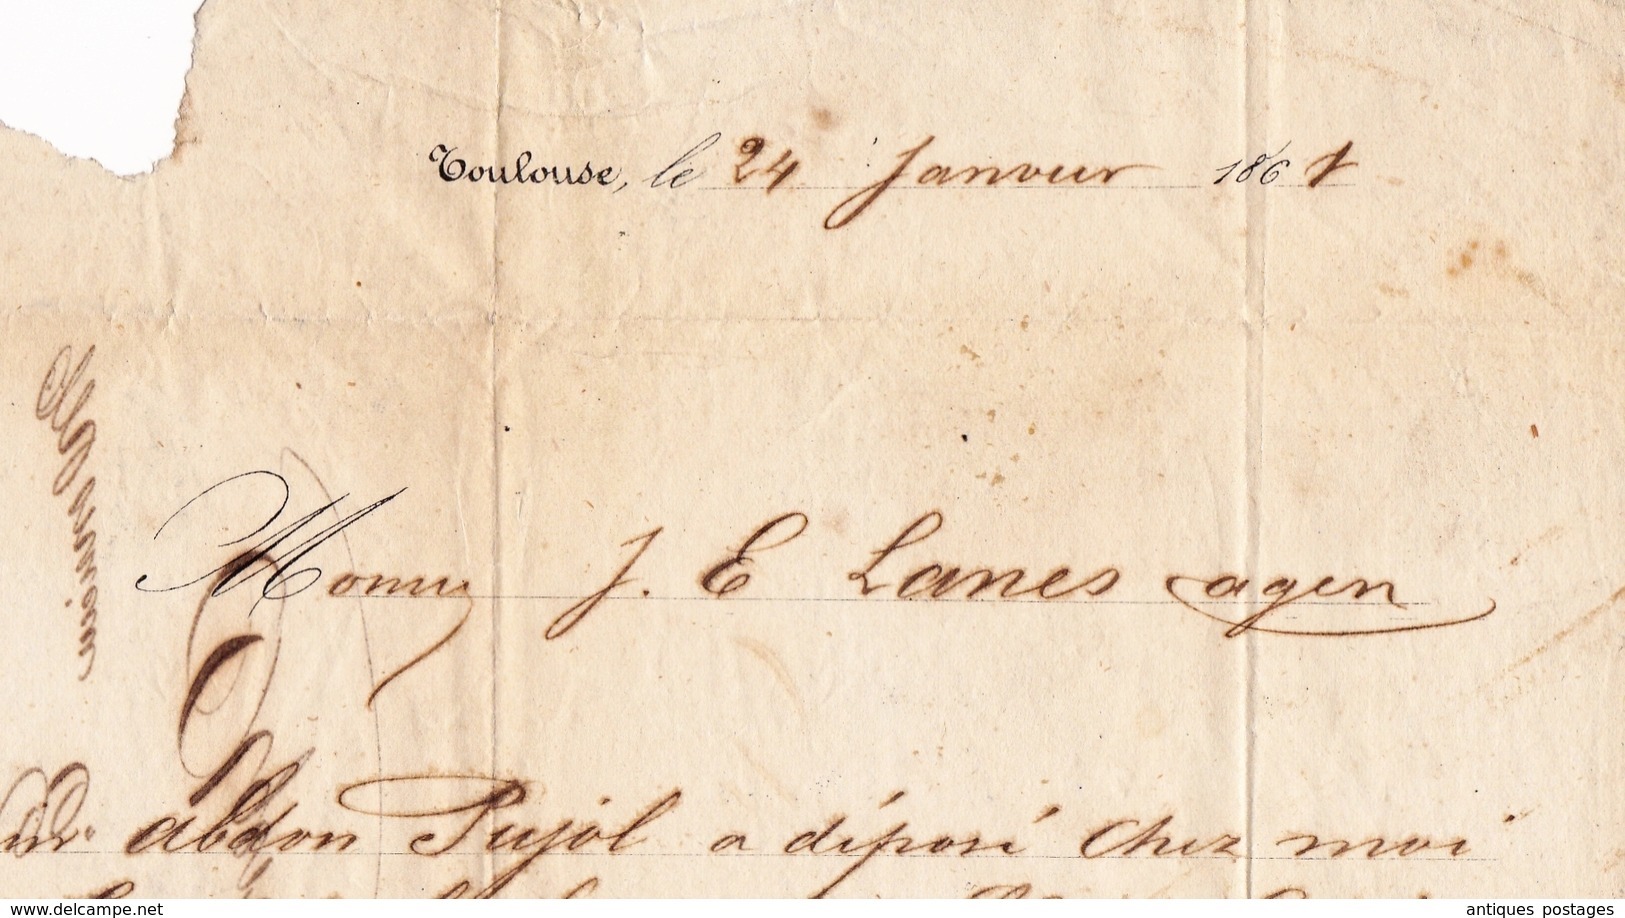 Toulouse, le 24 Janvier 1861
Monsr J. E Lanes agen
abdon Pujol a déposé chez moi
delcampe.net
antiques postages